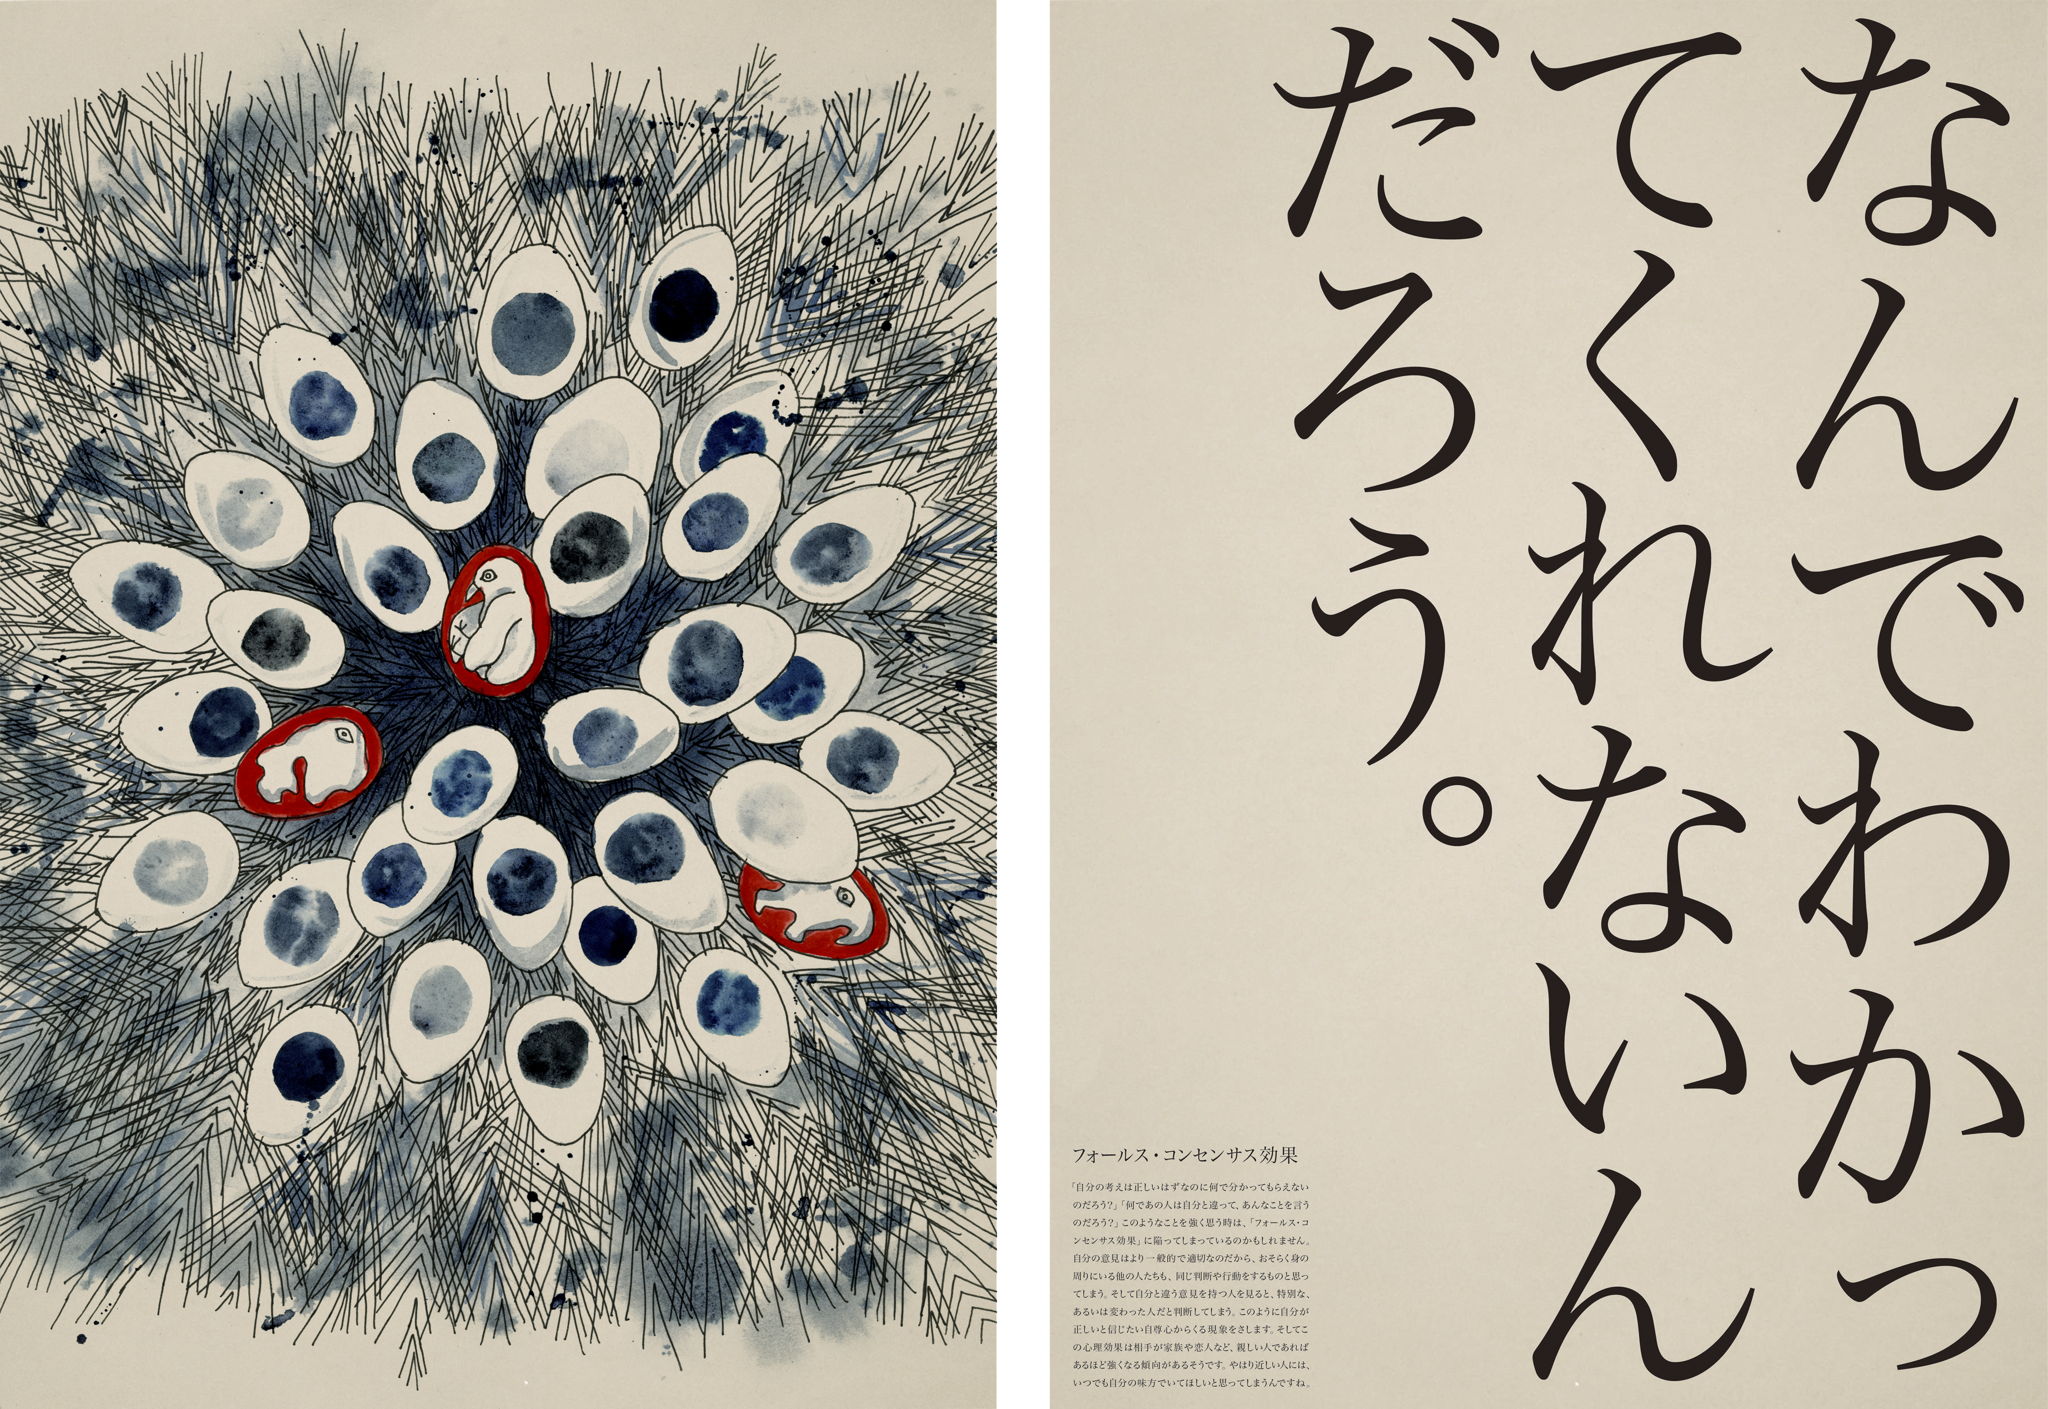 なんでわかっ
てくれないん
だろう。
フォールス・コンセンサス効果
「自分の考えは正しいはずなのに何で分かってもらえない
のだろう？」「何であの人は自分と違って、あんなことを言う
のだろう？」このようなことを強く思う時は、「フォールス・コ
ンセンサス効果」に陥ってしまっているのかもしれません。
自分の意見はより一般的で適切なのだから、おそらく身の
周りにいる他の人たちも、同じ判断や行動をするものと思っ
てしまう。そして自分と違う意見を持つ人を見ると、特別な、
あるいは変わった人だと判断してしまう。このように自分が
正しいと信じたい自尊心からくる現象をさします。そしてこ
の心理効果は相手が家族や恋人など、親しい人であれば
あるほど強くなる傾向があるそうです。やはり近しい人には、
いつでも自分の味方でいてほしいと思ってしまうんですね。